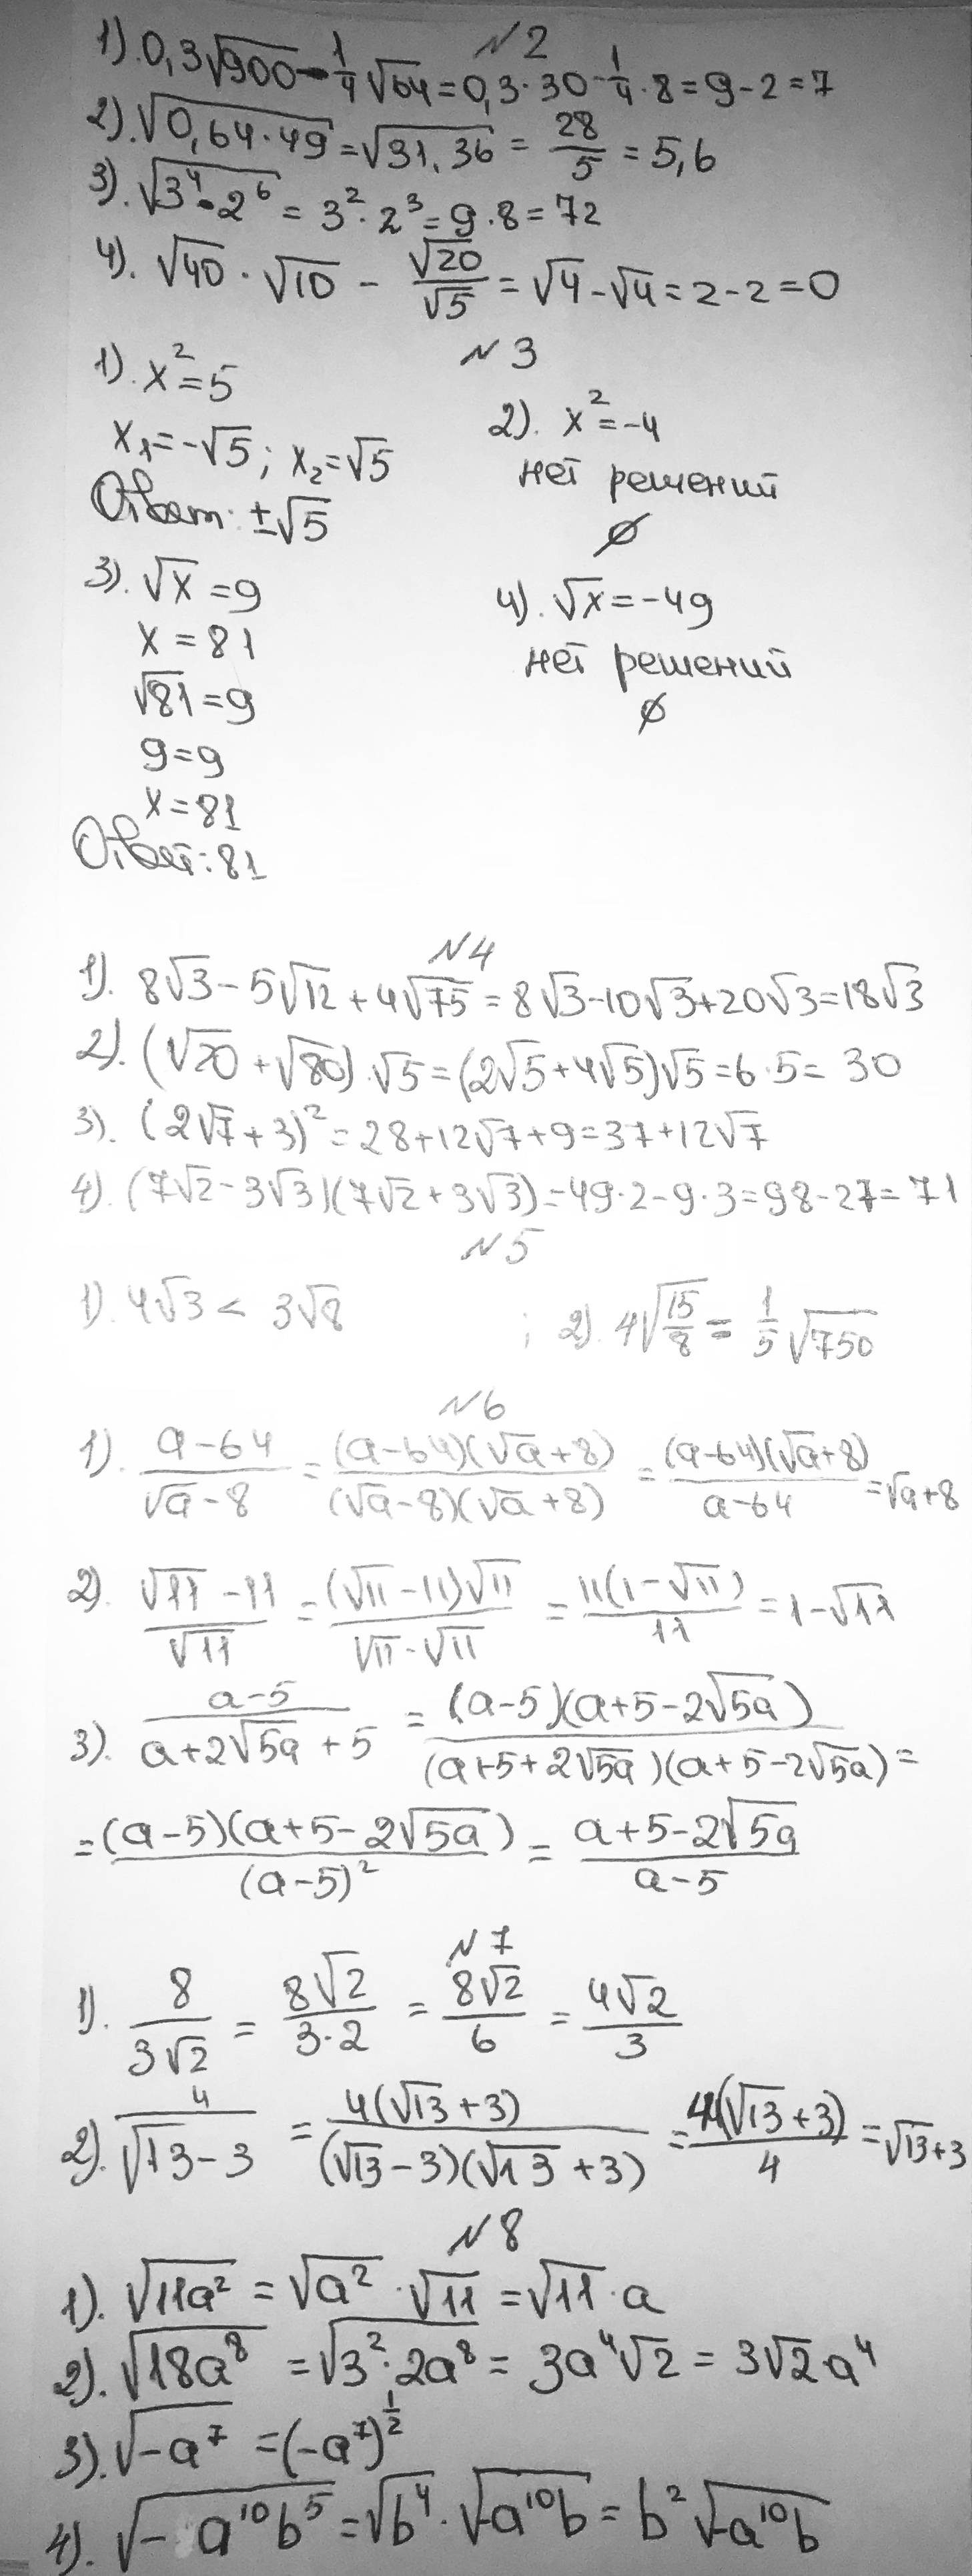 №2
1). 0,3√900 - 1/4√64 = 0,3·30 - 1/4·8 = 9-2 = 7
2). √(0,64·49) = √(31,36) = 28/5 = 5,6
3). √(3⁴·2⁶) = 3²·2³ = 9·8 = 72
4). √40·√10 - √20/√5 = √4-√4 = 2-2 = 0
№3
1). x² = 5
x₁ = -√5; x₂ = √5
Ответ: ±√5
2). x² = -4
нет решений
∅
3). √x = 9
x = 81
√81 = 9
9 = 9
x = 81
Ответ: 81
4). √x = -49
нет решений
∅
№4
1). 8√3 - 5√12 + 4√75 = 8√3-10√3+20√3 = 18√3
2). (√20 + √80)·√5 = (2√5+4√5)√5 = 6·5 = 30
3). (2√7+3)² = 28+12√7+9 = 37+12√7
4). (7√2-3√3)(7√2+3√3) = 49·2-9·3 = 98-27 = 71
№5
1). 4√3 < 3√8 ; 2). 4√(15/8) = 1/5 √750
№6
1). (a-64)/(√a-8) = ((a-64)(√a+8))/((√a-8)(√a+8)) = ((a-64)(√a+8))/(a-64) = √a+8
2). (√11-11)/√11 = ((√11-11)√11)/(√11·√11) = (11(1-√11))/11 = 1-√11
3). (a-5)/(a+2√(5a)+5) = ((a-5)(a+5-2√(5a)))/((a+5+2√(5a))(a+5-2√(5a))) =
= ((a-5)(a+5-2√(5a)))/(a-5)² = (a+5-2√(5a))/(a-5)
№7
1). 8/(3√2) = 8√2/(3·2) = 8√2/6 = 4√2/3
2). 4/(√13-3) = (4(√13+3))/((√13-3)(√13+3)) = (4(√13+3))/4 = √13+3
№8
1). √(11a²) = √(a²)·√11 = √11·a
2). √(18a⁸) = √(3²·2a⁸) = 3a⁴√2 = 3√2a⁴
3). √(-a⁷) = (-a⁷)^(1/2)
4). √(-a¹⁰b⁵) = √(b⁴)·√(-a¹⁰b) = b²√(-a¹⁰b)